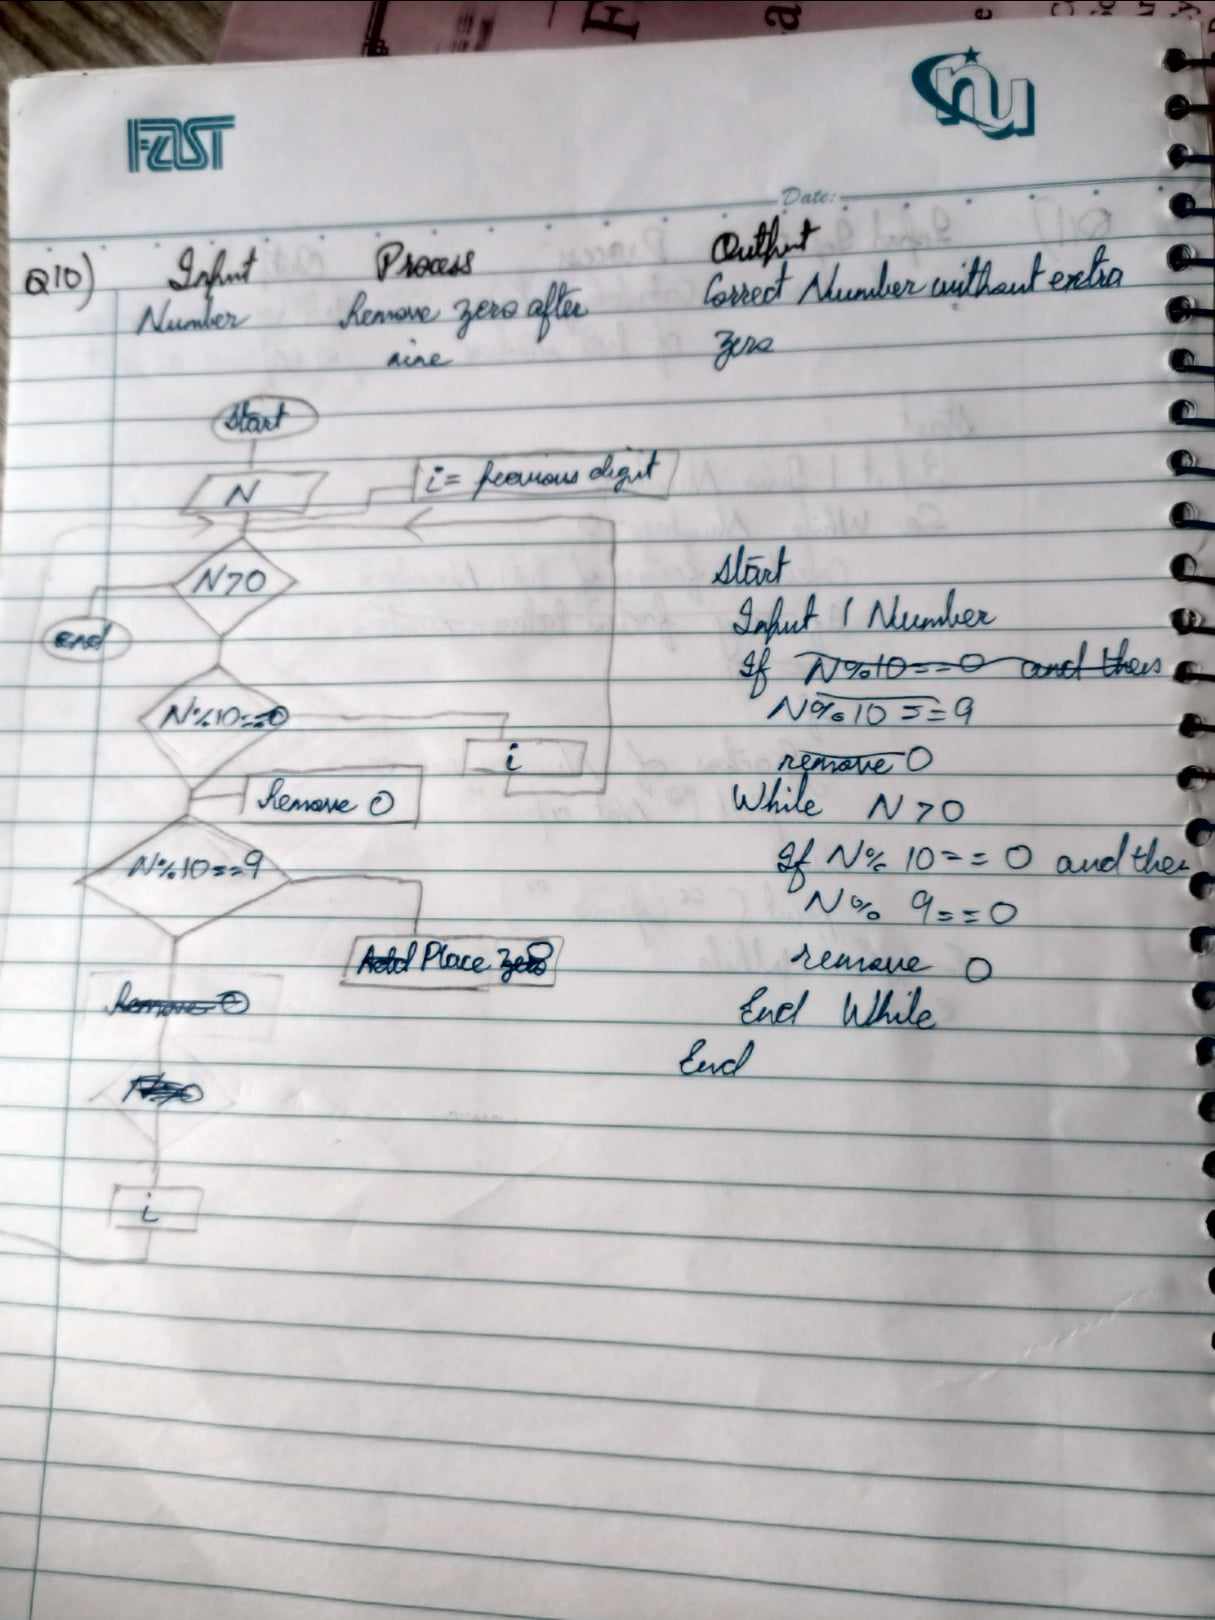 FAST
nu
Date:
Q10) Input Process Output
Number Remove zero after Correct Number without extra
nine zero
Start
N i = previous digit
N>0
end
N%10==0
i
Remove 0
N%10==9
Add Place zero
Remove 0
i
Start
Input 1 Number
If N%10==0 and then
N%10==9
remove 0
While N>0
If N% 10==0 and then
N% 9==0
remove 0
End While
End